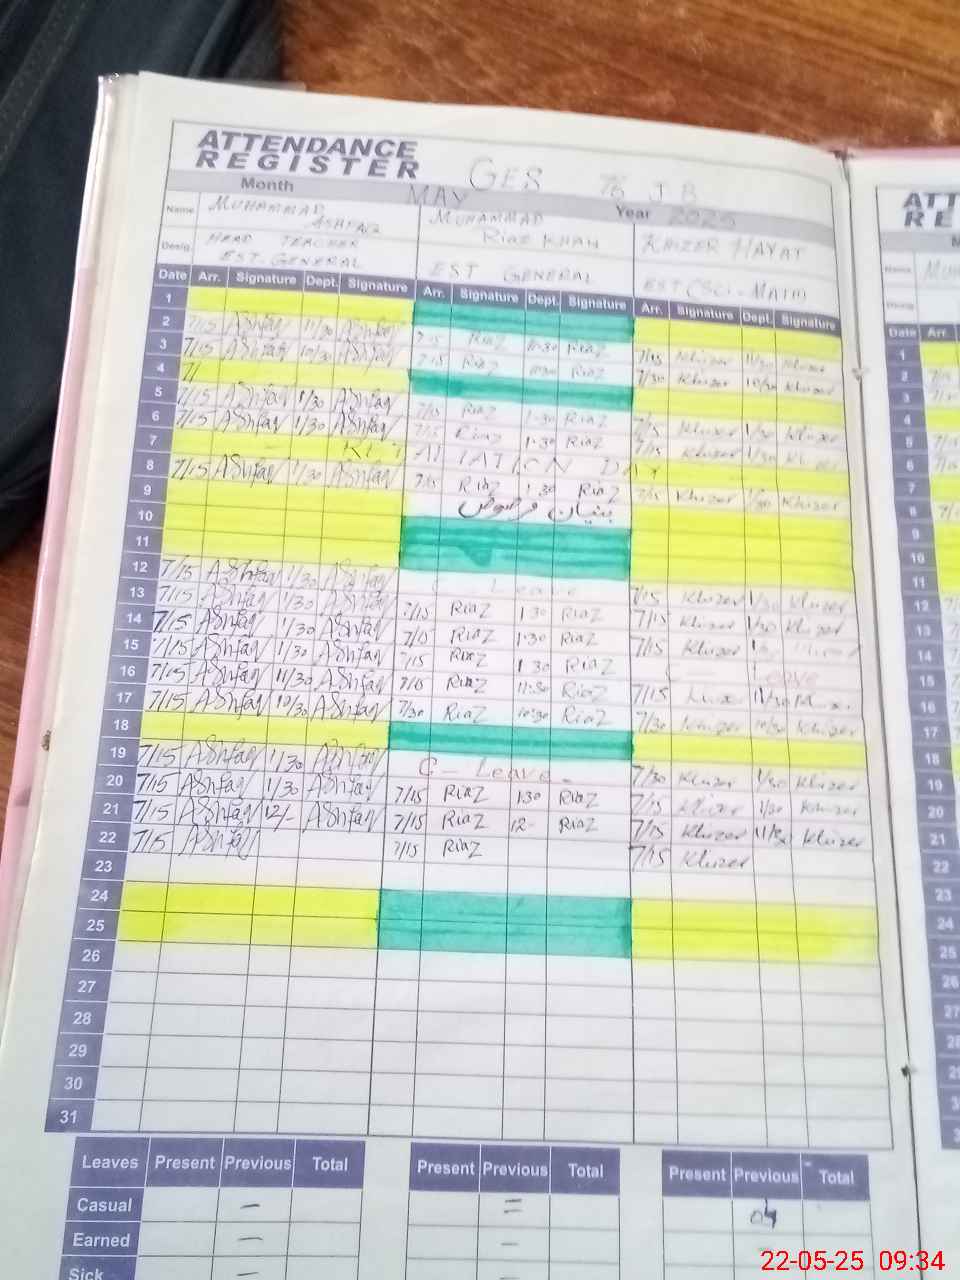 ATTENDANCE
REGISTER
GES 76 J B
Month MAY Year 2025
Name MUHAMMAD ASHFAQ MUHAMMAD RIAZ KHAN KHIZER HAYAT
Desig. HEAD TEACHER EST GENERAL EST GENERAL EST (SCI-MATH)
Date Arr. Signature Dept. Signature Arr. Signature Dept. Signature Arr. Signature Dept. Signature
1
2 7/15 AShfaq 11/30 AShfaq 7/15 RiaZ 11:30 RiaZ 7/15 Khizer 11/30 Khizer
3 7/15 AShfaq 10/30 AShfaq 7/15 RiaZ 10:30 RiaZ 7/30 Khizer 10/30 Khizer
4 7/
5 7/15 AShfaq 1/30 AShfaq 7/15 RiaZ 1:30 RiaZ 7/15 Khizer 1/30 Khizer
6 7/15 AShfaq 1/30 AShfaq 7/15 RiaZ 1:30 RiaZ 7/15 Khizer 1/30
7 DAY
8 7/15 AShfaq 1/30 AShfaq 7/15 RiaZ 1:30 RiaZ 7/15 Khizer 1/30 Khizer
9 بنیان مرصوص
10
11
12 7/15 AShfaq 1/30 AShfaq C Leave 7/15 Khizer 1/30 Khizer
13 7/15 AShfaq 1/30 AShfaq 7/15 RiaZ 1:30 RiaZ 7/15 Khizer 1/30 Khizer
14 7/15 AShfaq 1/30 AShfaq 7/15 RiaZ 1:30 RiaZ 7/15 Khizer
15 7/15 AShfaq 1/30 AShfaq 7/15 RiaZ 1:30 RiaZ C — Leave
16 7/15 AShfaq 11/30 AShfaq 7/15 RiaZ 11:30 RiaZ 7/15 11/30
17 7/15 AShfaq 10/30 AShfaq 7/30 RiaZ 10:30 RiaZ 7/30 Khizer 10/30 Khizer
18
19 7/15 AShfaq 1/30 AShfaq C — Leave — 7/30 Khizer 1/30 Khizer
20 7/15 AShfaq 1/30 AShfaq 7/15 RiaZ 1:30 RiaZ 7/15 Khizer 1/30 Khizer
21 7/15 AShfaq 12/- AShfaq 7/15 RiaZ 12- RiaZ 7/15 Khizer 11/30 Khizer
22 7/15 AShfaq 7/15 RiaZ 7/15 Khizer
23
24
25
26
27
28
29
30
31
Leaves Present Previous Total Present Previous Total Present Previous Total
Casual — = 04
Earned — —
Sick —
22-05-25 09:34